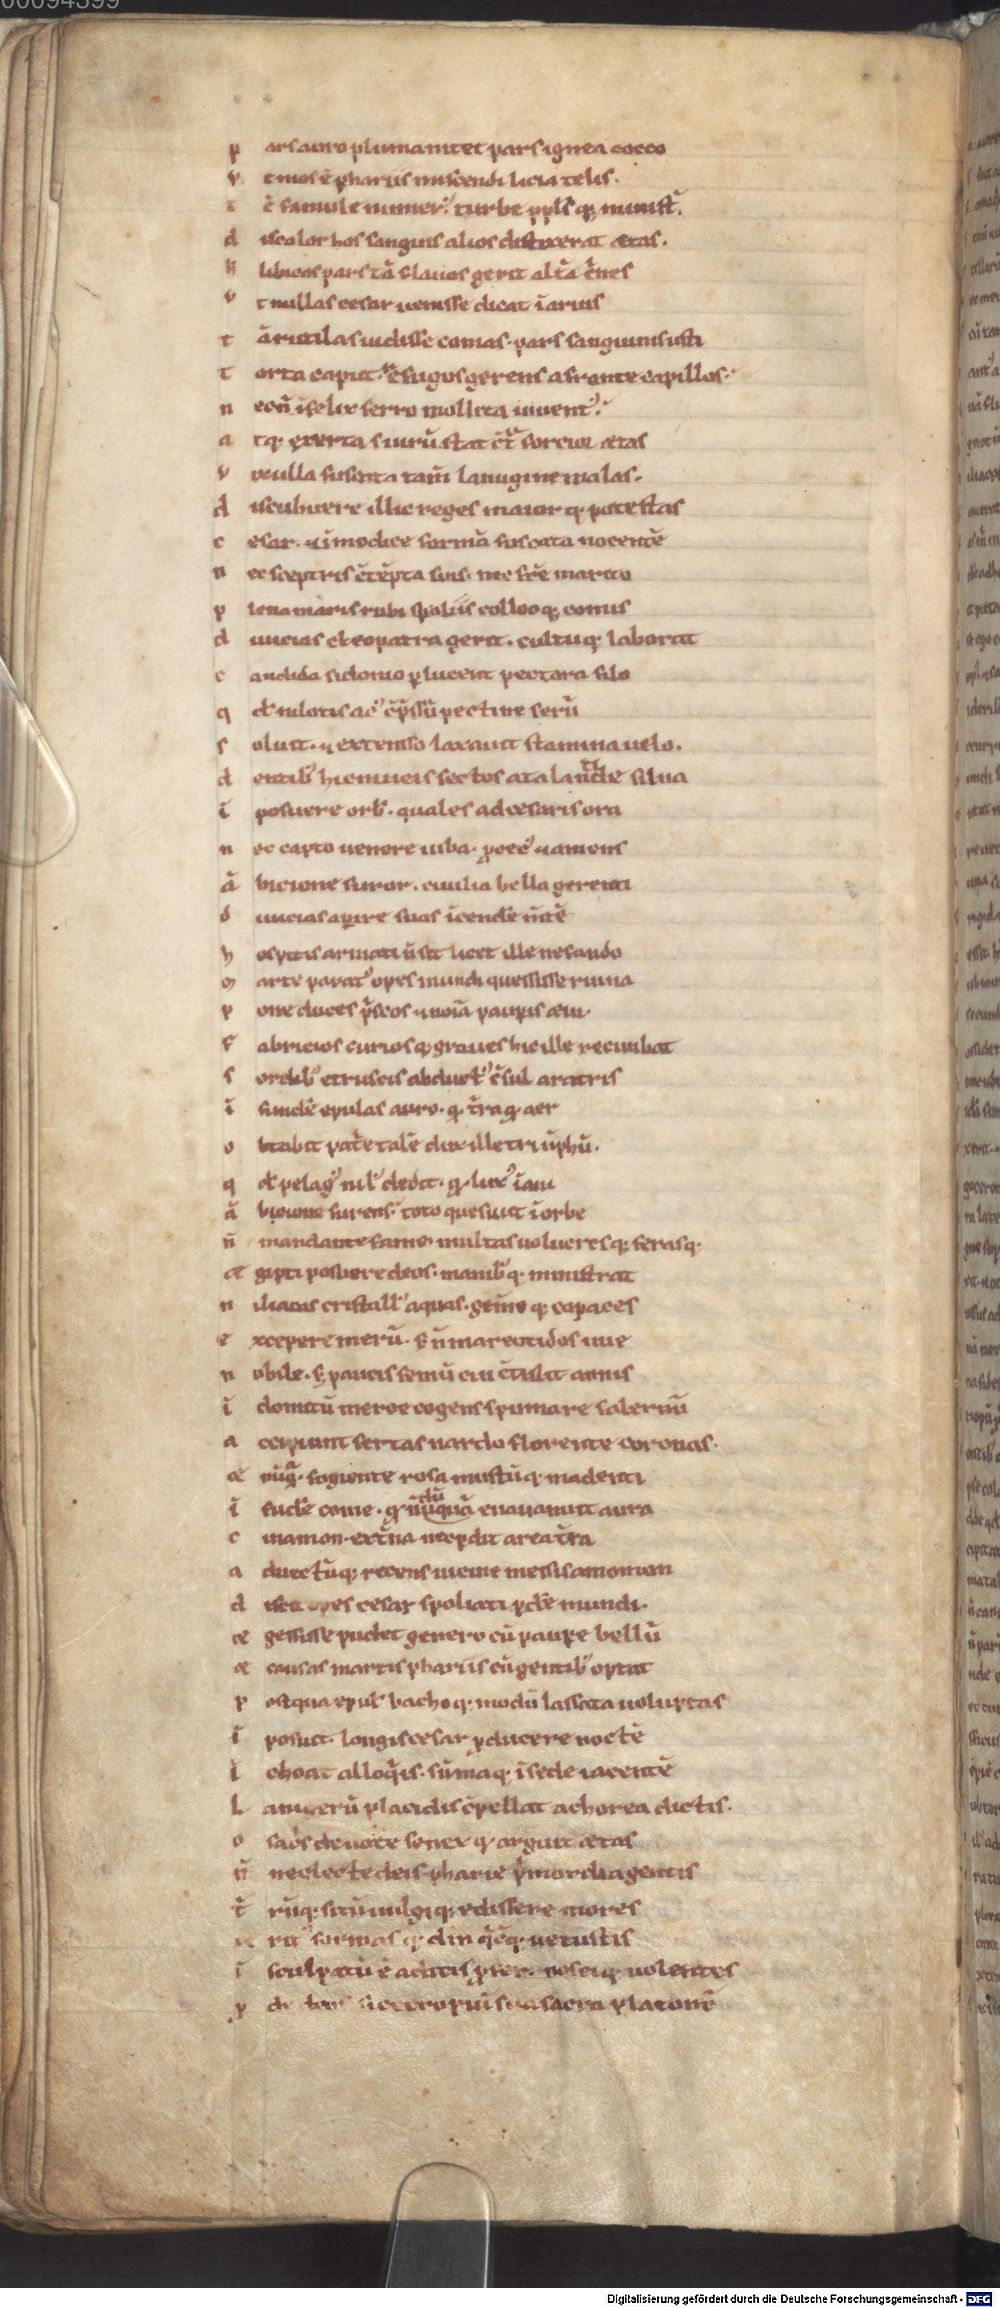 00094399
p ars auro plumanitet pars ignea cocco
v t mos ē phariis miscendi licia telis.
t c̄ famule numer᷒ turbe ppl̄s q; minist̄.
d iscolor hos sanguis alios distixerat ætas.
h libicos pars tā flauos gerit alt̄a c̄nes
v t nullas cesar uenisse dicat ī aruis
t ā rutilas uidisse comas. pars sanguinis usti
t orta caput. refugosgerens a fronte capillos.
n ecn̄ ifelix ferro mollita iuuent᷒.
a tq; exerta s uirū. stat c̄t̄ forcior ætas
v ix ulla fuscnta tam̄ lanugine malas.
d iscubuere illic reges maior q; potestas
c esar. ⁊ īmodice formā fuscata nocentē
n ec sceptris c̄tēpta suis. nec fr̄e marito
p lena maris rubi spoliis colloq; comis
d iuicias cleopatra gerit. cultuq; laborat
c andida sidonio p lucent pectora filo
q d' nilotis ac᷒ c̄p̄ssū pectine serū
s oluit. ⁊ extenso laxauit stamina uelo.
d entib᷒ hic niueis sectos atalantide silua
ī posuere orb᷒. quales ad cesaris ora
n ec capto uenere iuba. p̄ cec᷒ ⁊ amens
ā bicione furor. ciuilia bella gerenti
d iuicias apire suas īcend'e m̄tē
h ospitis armati n̄ sit licet ille nefando
m arte parat᷒ opes mundi quesisse ruina
p one duces p̄scos ⁊ noīa paupis æui.
f abricios curiosq; graues hic ille recumbat
s ordib᷒ etruscis abduct᷒ c̄sul aratris
ī fund'e epulas auro. q; t̄ra q; aer
o btabit pat̄e talē dux ille triūphū.
q d' pelag᷒ nil᷒ dedit. q; lux᷒ īani
ā bicione furens᷒ toto quesiuit ī orbe
n̄ mandante fame. multas uolucresq; ferasq;
æ gipti posuere deos. manib᷒ q; ministrat
n iliacas cristall᷒ aquas. gēme q; capaces
e xcepere merū. s; n̄ mareotidos uue
n obile. s; paucis semū cui c̄tulit annis
ī domitū meroe cogens spumare falernū
a ccipiunt sertas nardo florente coronas.
æ nūq̄. fugiente rosa multūq; madenti
ī fud'e come. q; nūquā dū euauanuit aura
c inamon. ext̄na nec pdit area t̄ra
a duectūq; recens uicine messis amomum
d iscit opes cesar spoliati pd'e mundi.
æ gessisse pudet genero cū paupe bellū
æ causas martis phariis cū gentib᷒ optat
p ostqua epul᷒ bacho q; modū lassata uoluptas
ī posuit. longis cesar pducere noctē
ī choat alloq̄is. sūmaq; ī sede iacentē
l anigerū placidis c̄pellat achorea dictis.
o sac̄s deuote senex q; arguit ætas
n̄ neglecte deis pharie p̄mordia gentis
t̄ rūq; sitū uulgiq; edissere mores
rit᷒ formas q; din q̄cq; uetustis
ī sculptū ē aditis pfer. nosciq; uolentes
p de deos si cecropui sua sacra platonē
Digitalisierung gefördert durch die Deutsche Forschungsgemeinschaft - DFG